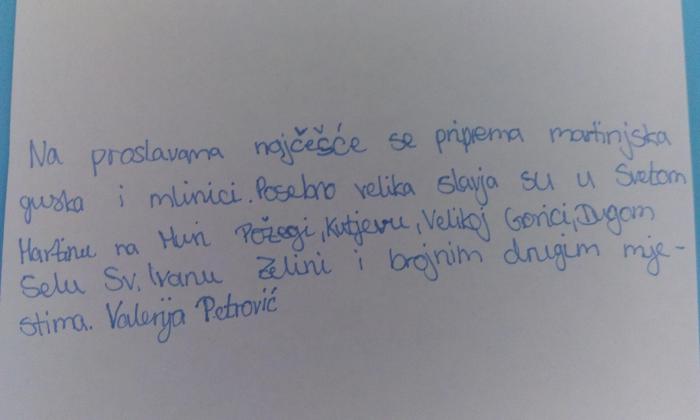 Na proslavama najčešće se priprema martinjska
guska i mlinici. Posebno velika slavja su u Svetom
Martinu na Muri Požegi, Kutjevu, Velikoj Gorici, Dugom
Selu Sv. Ivanu Zelini i brojnim drugim mje-
stima. Valerija Petrović